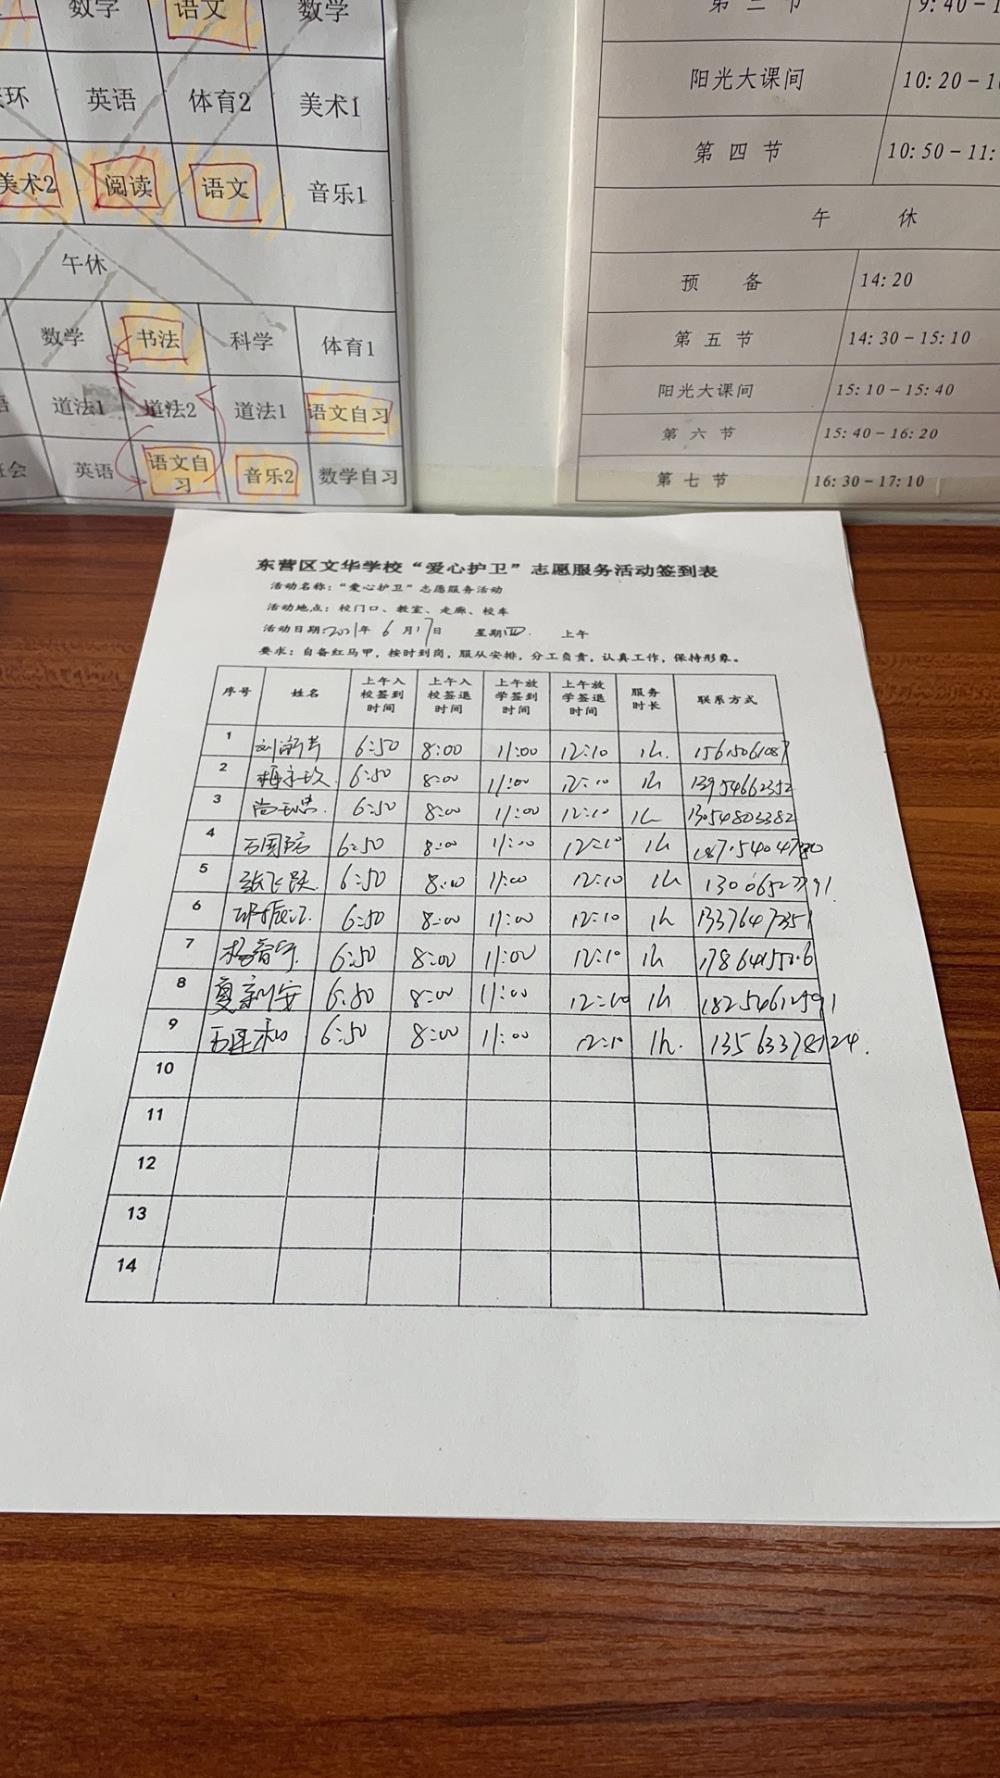 数学 语文 数学
英语 体育2 美术1
美术2 阅读 语文 音乐1
午休
数学 书法 科学 体育1
道法1 道法2 道法1 语文自习
英语 语文自习 音乐2 数学自习
阳光大课间 10:20-1
第四节 10:50-11:
午 休
预 备 14:20
第五节 14:30-15:10
阳光大课间 15:10-15:40
第六节 15:40-16:20
第七节 16:30-17:10
东营区文华学校“爱心护卫”志愿服务活动签到表
活动名称:“爱心护卫”志愿服务活动
活动地点:校门口、教室、走廊、校车
活动日期:2021年 6月17日 星期四 上午
要求:自备红马甲,按时到岗,服从安排,分工负责,认真工作,保持形象。
序号 姓名 上午入校签到时间 上午入校签退时间 上午放学签到时间 上午放学签退时间 服务时长 联系方式
1 6:50 8:00 11:00 12:10 1h.
2 6:50 8:00 11:00 12:10 1h 13954662352
3 6:50 8:00 11:00 12:10 1h 13054803382
4 6:50 8:00 11:00 12:10 1h
5 张飞跃 6:50 8:00 11:00 12:10 1h
6 6:50 8:00 11:00 12:10 1h
7 6:50 8:00 11:00 12:10 1h
8 6:50 8:00 11:00 12:10 1h
9 6:50 8:00 11:00 12:10 1h. 13563378124.
10
11
12
13
14